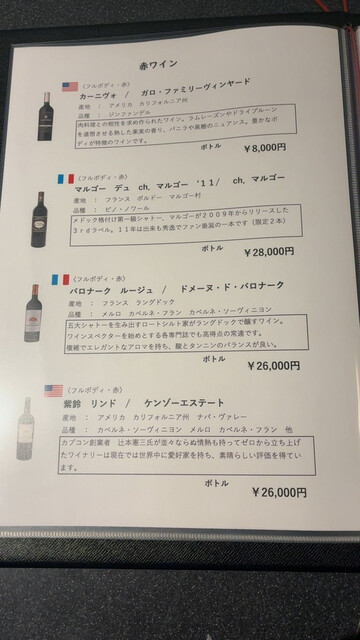 赤ワイン
〈フルボディ・赤〉
カーニヴォ / ガロ・ファミリーヴィンヤード
産地 : アメリカ カリフォルニア州
品種 : ジンファンデル
肉料理との相性を求め作られたワイン。ラムレーズンやドライプルーン
を連想させる熟した果実の香り、バニラや黒糖のニュアンス。豊かなボ
ディが特徴のワインです。
ボトル
¥8,000円
〈フルボディ・赤〉
マルゴー デュ ch, マルゴー '11/ ch, マルゴー
産地 : フランス ボルドー マルゴー村
品種 : ピノ・ノワール
メドック格付け第一級シャトー、マルゴーが2009年からリリースした
3rdラベル。11年は出来も秀逸でファン垂涎の一本です(限定2本)
ボトル
¥28,000円
〈フルボディ・赤〉
バロナーク ルージュ / ドメーヌ・ド・バロナーク
産地 : フランス ラングドック
品種 : メルロ カベルネ・フラン カベルネ・ソーヴィニヨン
五大シャトーを生み出すロートシルト家がラングドックで醸すワイン。
ワインスペクターを始めとする各専門誌でも高得点の常連です。
複雑でエレガントなアロマを持ち、酸とタンニンのバランスが良い。
ボトル
¥26,000円
〈フルボディ・赤〉
紫鈴 リンド / ケンゾーエステート
産地 : アメリカ カリフォルニア州 ナパ・ヴァレー
品種 : カベルネ・ソーヴィニヨン メルロ カベルネ・フラン 他
カプコン創業者 辻本憲三氏が並々ならぬ情熱も持ってゼロから立ち上げ
たワイナリーは現在では世界中に愛好家を持ち、素晴らしい評価を得てい
ます。
ボトル
¥26,000円